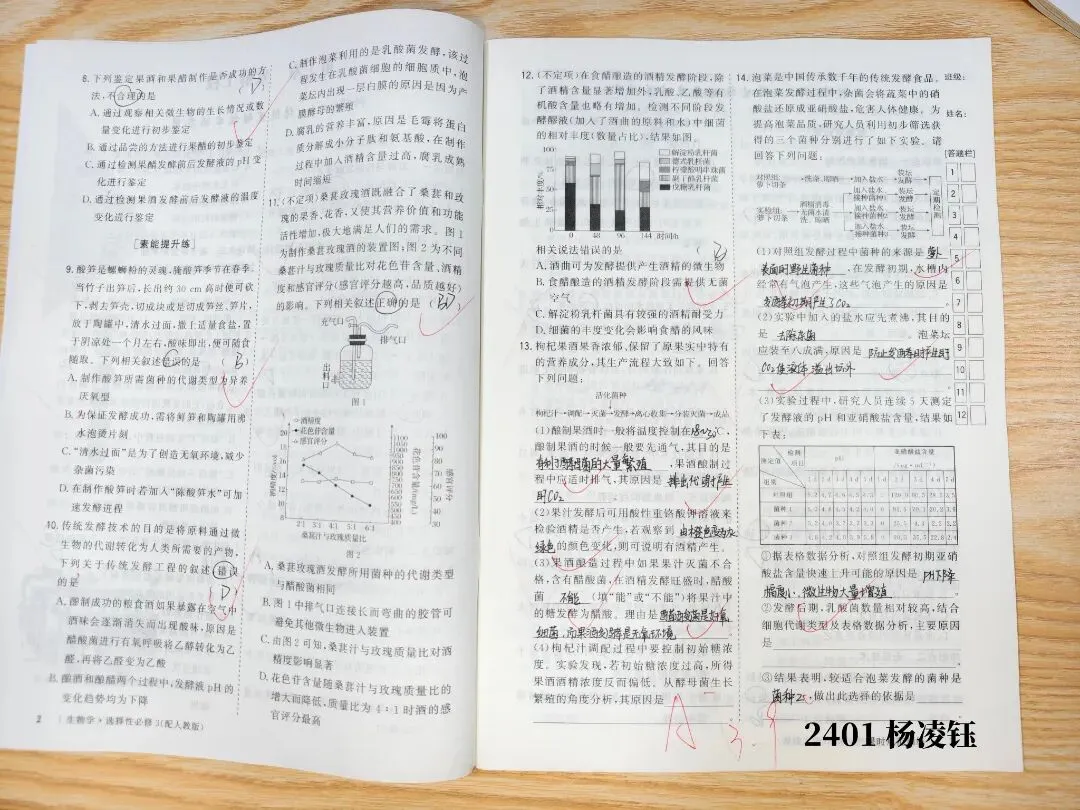 8. 下列鉴定果酒和果醋制作是否成功的方
法，不合理的是 (D)
A. 通过观察相关微生物的生长情况或数
量变化进行初步鉴定
B. 通过品尝的方法进行果醋的初步鉴定
C. 通过检测果醋发酵前后发酵液的pH变
化进行鉴定
D. 通过检测果酒发酵前后发酵液的温度
变化进行鉴定
[素能提升练]
9. 酸笋是螺蛳粉的灵魂，腌酸笋季节在春季，
当竹子出笋后，长出约30 cm高时便可砍
下，剥去笋壳，切成块或是切成笋丝、笋片，
放于陶罐中，清水过面，撒上适量食盐，置
于阴凉处一个月左右，酸味即出，便可随食
随取。下列相关叙述错误的是 (B)
A. 制作酸笋所需菌种的代谢类型为异养
厌氧型
B. 为保证发酵成功，需将鲜笋和陶罐用沸
水泡烫片刻
C. “清水过面”是为了创造无氧环境，减少
杂菌污染
D. 在制作酸笋时若加入“陈酸笋水”可加
速发酵进程
10. 传统发酵技术的目的是将原料通过微
生物的代谢转化为人类所需要的产物，
下列关于传统发酵工程的叙述，错误
的是 (D)
A. 酿制成功的粮食酒如果暴露在空气中
酒味会逐渐消失而出现酸味，原因是
醋酸菌进行有氧呼吸将乙醇转化为乙
醛，再将乙醛变为乙酸
B. 酿酒和酿醋两个过程中，发酵液pH的
变化趋势均为下降
2 | 生物学·选择性必修3(配人教版)
C. 制作泡菜利用的是乳酸菌发酵，该过
程发生在乳酸菌细胞的细胞质中，泡
菜坛内出现一层白膜的原因是因为产
膜酵母的繁殖
D. 腐乳的营养丰富，原因是毛霉将蛋白
质分解成小分子肽和氨基酸，在制作
过程中加入酒精含量过高，腐乳成熟
时间缩短
11. (不定项)桑葚玫瑰酒既融合了桑葚和玫
瑰的果香、花香，又使其营养价值和功能
活性增加，极大地满足人们的需求。图1
为制作桑葚玫瑰酒的装置图；图2为不同
桑葚汁与玫瑰质量比对花色苷含量、酒精
度和感官评分(感官评分越高，品质越好)
的影响。下列相关叙述正确的是 (BD)
充气口
排气口
出料口
图1
酒精度
花色苷含量
感官评分
酒精度/(%vol)
花色苷含量/(mg/L)
感官评分
2:1 3:1 4:1 5:1 6:1
桑葚汁与玫瑰质量比
图2
A. 桑葚玫瑰酒发酵所用菌种的代谢类型
与醋酸菌相同
B. 图1中排气口连接长而弯曲的胶管可
避免其他微生物进入装置
C. 由图2可知，桑葚汁与玫瑰质量比对酒
精度影响显著
D. 花色苷含量随桑葚汁与玫瑰质量比的
增大而降低，质量比为4∶1时酒的感
官评分最高
12. (不定项)在食醋酿造的酒精发酵阶段，除
了酒精含量显著增加外，乳酸、乙酸等有
机酸含量也略有增加。检测不同阶段发
酵醪液(加入了酒曲的原料和水)中细菌
的相对丰度(数量占比)，结果如图。
解淀粉乳杆菌
戊糖乳杆菌
相对丰度/%
100
75
50
25
0
0 48 96 144 时间/h
相关说法错误的是 (B)
A. 酒曲可为发酵提供产生酒精的微生物
B. 食醋酿造的酒精发酵阶段需提供无菌
空气
C. 解淀粉乳杆菌具有较强的酒精耐受力
D. 细菌的丰度变化会影响食醋的风味
13. 枸杞果酒果香浓郁，保留了原果实中特有
的营养成分，其生产流程大致如下。回答
下列问题：
活化菌种
枸杞汁→调配→灭菌→发酵→离心收集→分装灭菌→成品
(1)酿制果酒时一般将温度控制在18~30℃，
酿制果酒的时候一般要先通气，其目的是
有利于酵母菌的大量繁殖，果酒酿制过
程中应适时排气，其原因是 排出代谢产生
的CO2
(2)果汁发酵后可用酸性重铬酸钾溶液来
检验酒精是否产生，若观察到 由橙色变为灰
绿色的颜色变化，则可说明有酒精产生。
(3)果酒酿造过程中如果果汁灭菌不合
格，含有醋酸菌，在酒精发酵旺盛时，醋酸
菌 不能 (填“能”或“不能”)将果汁中
的糖发酵为醋酸。理由是 醋酸菌是好氧
细菌，而果酒发酵是无氧环境
(4)枸杞汁调配过程中要控制初始糖浓
度。实验发现，若初始糖浓度过高，所得
果酒酒精浓度反而偏低。从酵母菌生长
繁殖的角度分析，其原因是
A
14. 泡菜是中国传承数千年的传统发酵食品。
在泡菜发酵过程中，杂菌会将蔬菜中的硝
酸盐还原成亚硝酸盐，危害人体健康。为
提高泡菜品质，研究人员利用初步筛选获
得的三个菌种分别进行了如下实验。请
回答下列问题：
对照组：萝卜切条
洗涤、晾晒
加入盐水
装坛发酵
实验组：萝卜切条
酒精消毒
无菌水清洗、晾晒
加入盐水、接种菌种1
装坛发酵
加入盐水、接种菌种2
装坛发酵
加入盐水、接种菌种3
装坛发酵
定期检测
(1)对照组发酵过程中菌种的来源是 萝卜
表面的野生菌种，在发酵初期，水槽内
经常有气泡产生，这些气泡产生的原因是
发酵初期产生了CO2
(2)实验中加入的盐水应先煮沸，其目的
是 去除杂菌 。泡菜坛
应装至八成满，原因是 防止发酵时产生的
CO2使液体溢出坛外
(3)实验过程中，研究人员连续5天测定
了发酵液的pH和亚硝酸盐含量，结果如
下表：
检测项目
测定值
组案
pH
亚硝酸盐含量
对照组
菌种1
菌种2
菌种3
①据表格数据分析，对照组发酵初期亚硝
酸盐含量快速上升可能的原因是 pH下降
幅度小，微生物大量增殖
②发酵后期，乳酸菌数量相对较高，结合
细胞代谢类型及表格数据分析，主要原因
是
③结果表明，较适合泡菜发酵的菌种是
菌种2，做出此选择的依据是
班级：
姓名：
[答题栏]
1
2
3
4
5
6
7
8
9
10
11
12
2401 杨凌钰